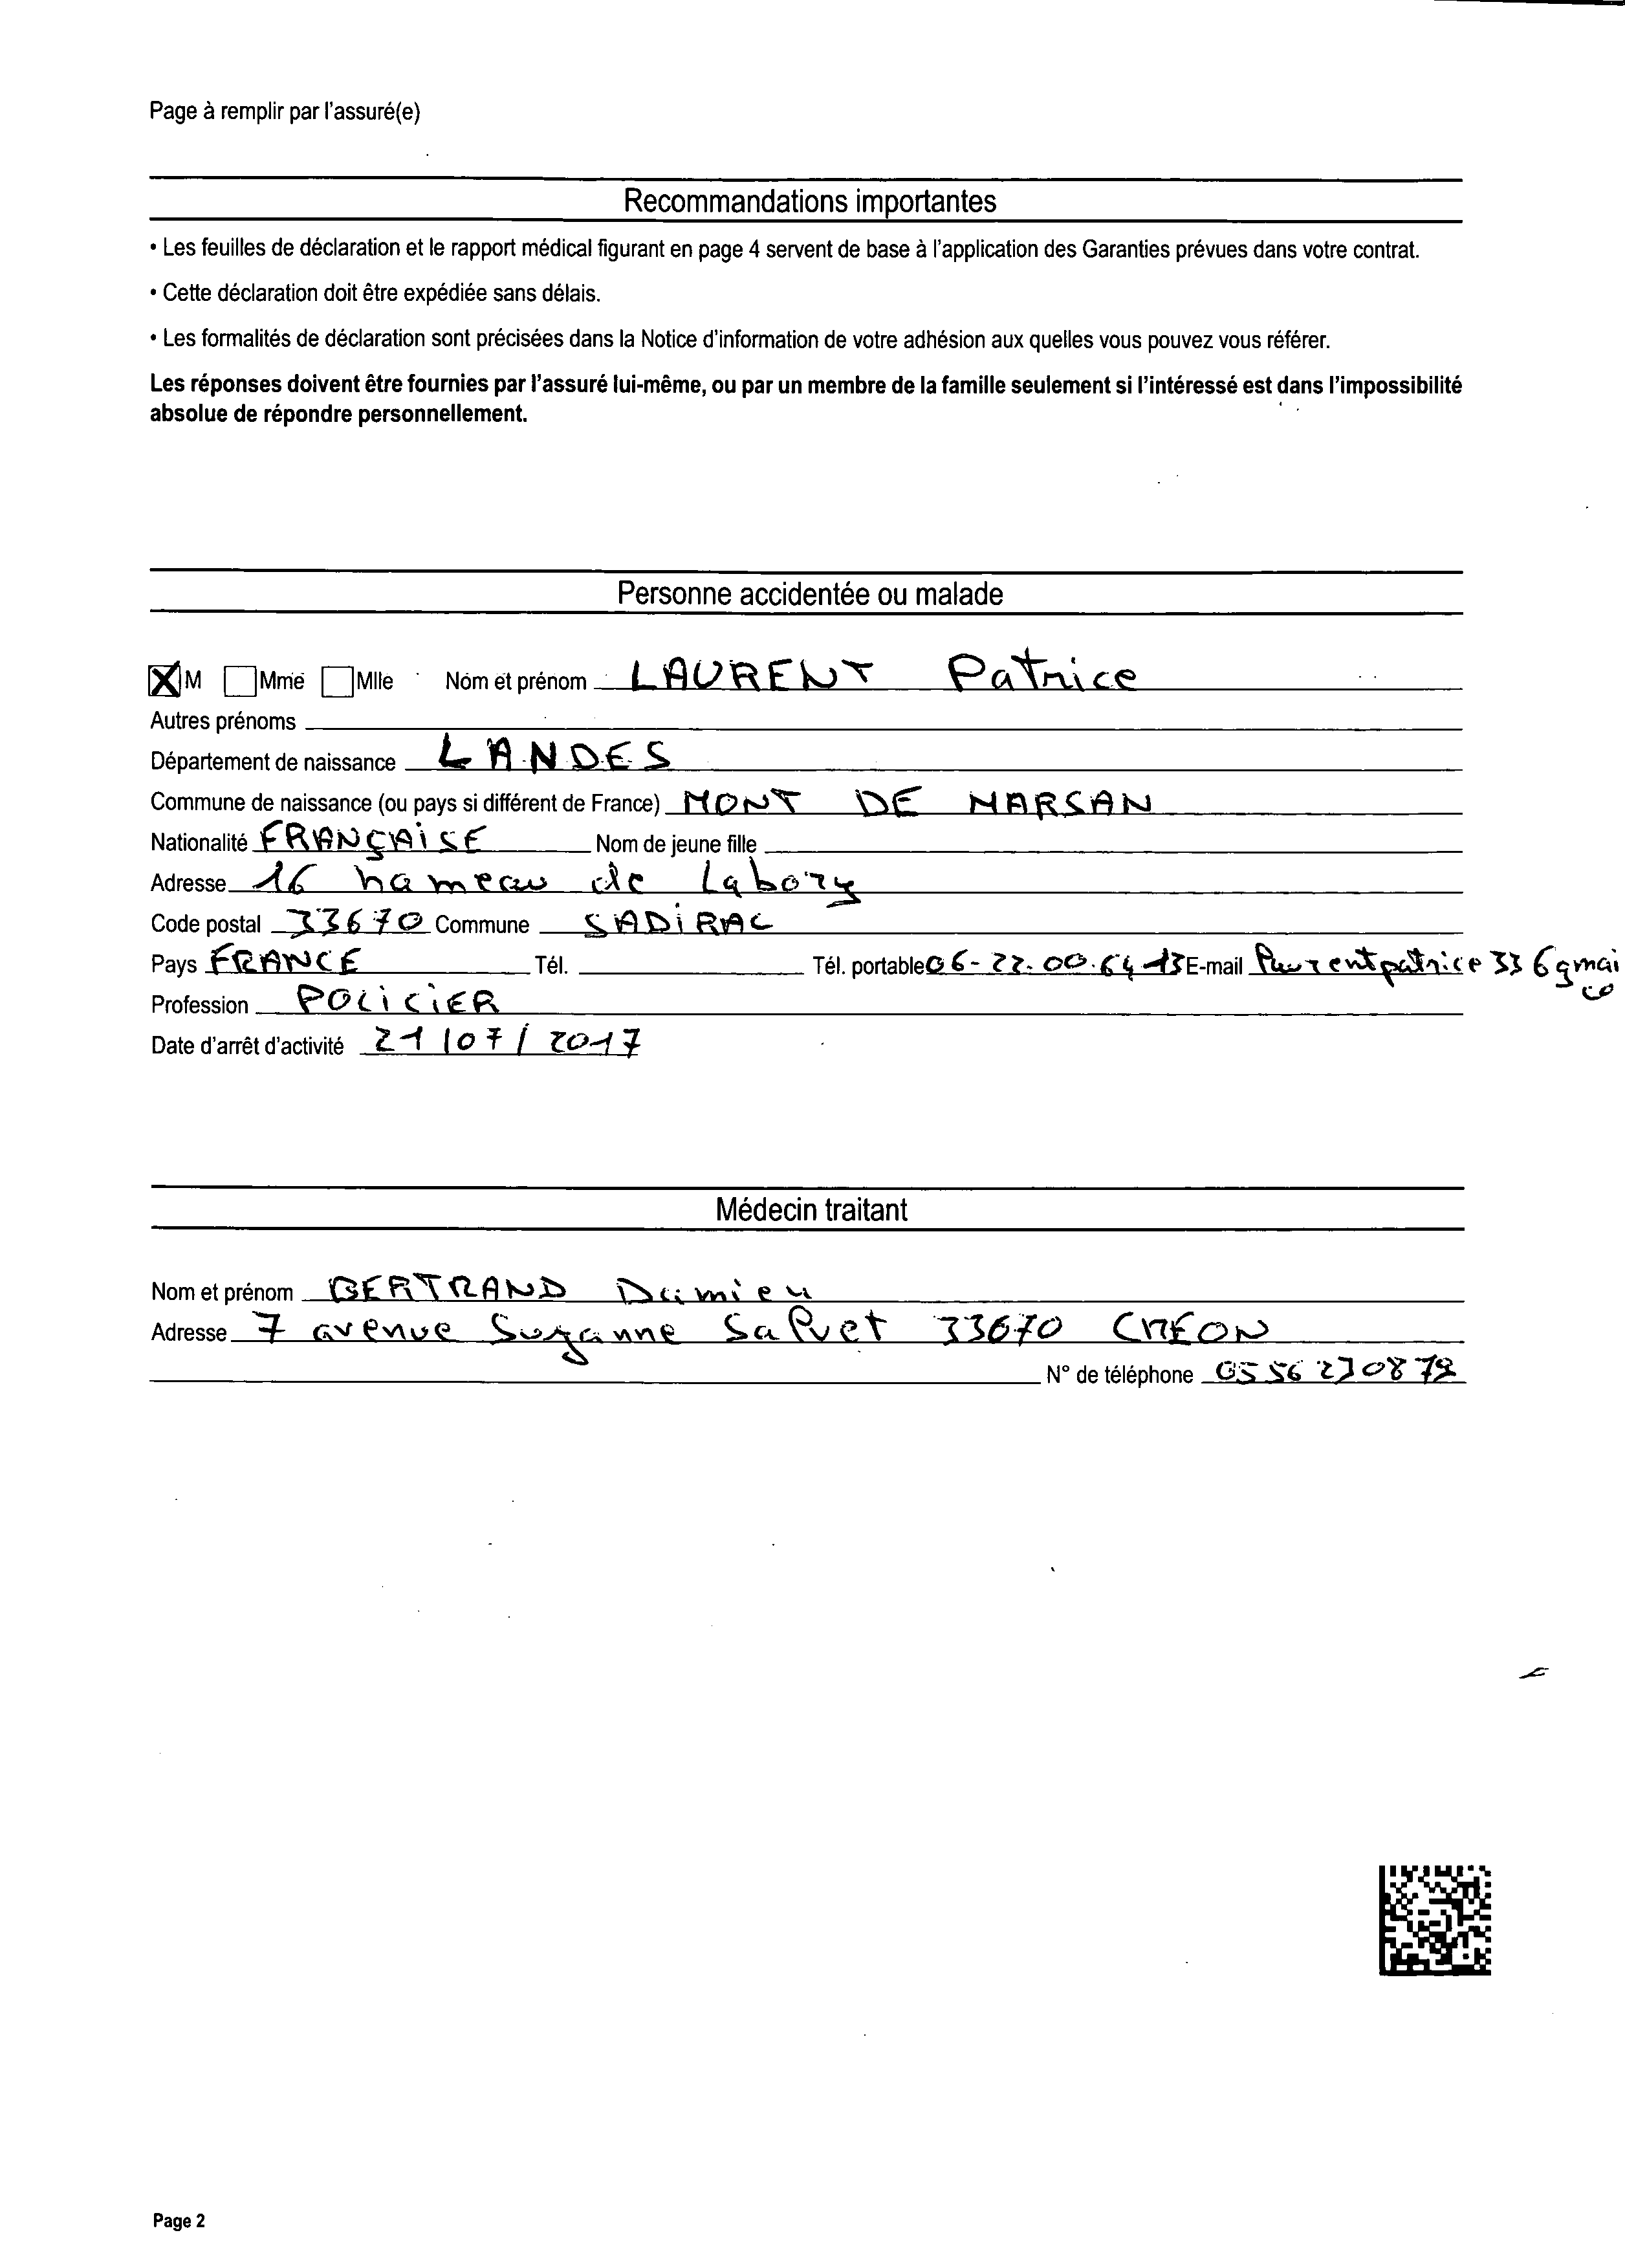 Page à remplir par l'assuré(e)
Recommandations importantes
• Les feuilles de déclaration et le rapport médical figurant en page 4 servent de base à l'application des Garanties prévues dans votre contrat.
• Cette déclaration doit être expédiée sans délais.
• Les formalités de déclaration sont précisées dans la Notice d'information de votre adhésion aux quelles vous pouvez vous référer.
Les réponses doivent être fournies par l'assuré lui-même, ou par un membre de la famille seulement si l'intéressé est dans l'impossibilité
absolue de répondre personnellement.
Personne accidentée ou malade
X M Mme Mlle Nom et prénom LAURENT Patrice
Autres prénoms
Département de naissance LANDES
Commune de naissance (ou pays si différent de France) MONT DE MARSAN
Nationalité FRANÇAISE Nom de jeune fille
Adresse 16 hameau de Labory
Code postal 33670 Commune SADIRAC
Pays FRANCE Tél. Tél. portable 06-22.00.64.13 E-mail
Profession POLICIER
Date d'arrêt d'activité 21/07/2017
Médecin traitant
Nom et prénom BERTRAND Damien
Adresse 7 avenue Suzanne Salvet 33670 CREON
N° de téléphone
Page 2